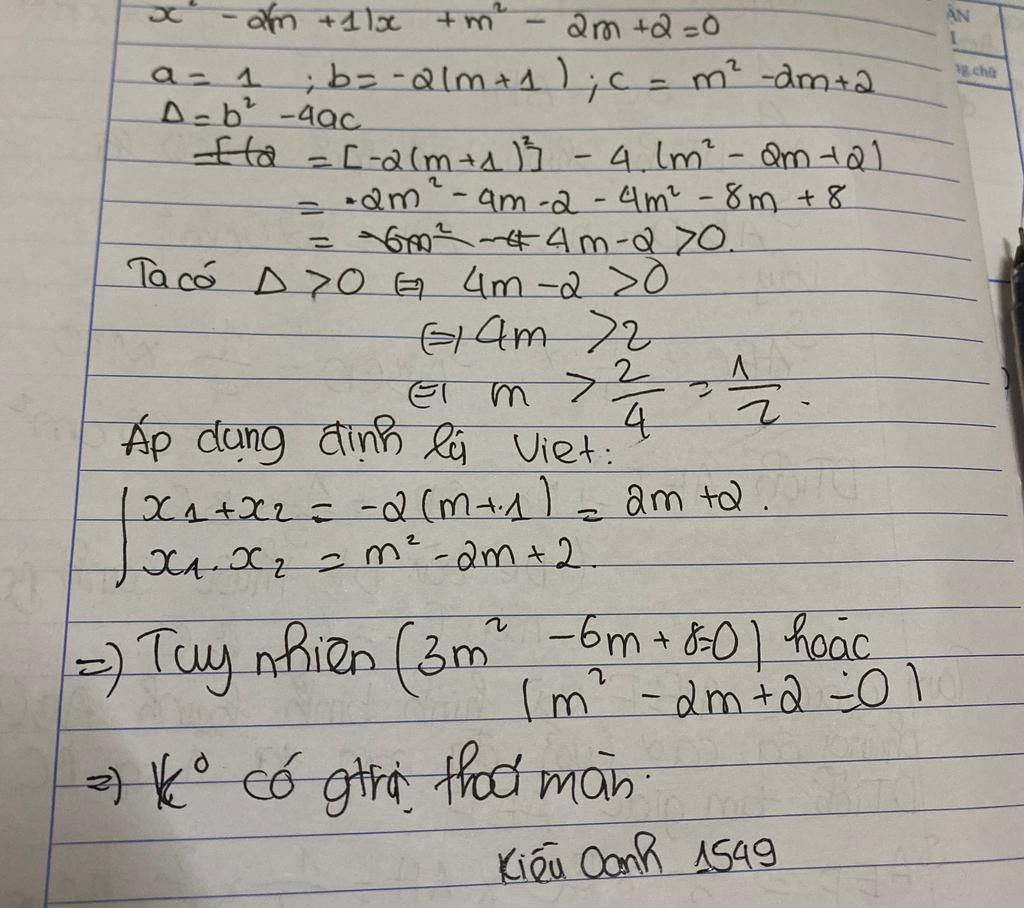 x² - 2(m + 1)x + m² - 2m + 2 = 0
ÂN
1
ng chữ
a = 1 ; b = -2(m + 1) ; c = m² - 2m + 2
Δ = b² - 4ac
= [-2(m + 1)²] - 4. (m² - 2m + 2)
= -2m² - 4m - 2 - 4m² - 8m + 8
= -6m² - 4 4m - 2 > 0.
Ta có Δ > 0 ⇔ 4m - 2 > 0
⇔ 4m > 2
⇔ m > 2/4 = 1/2.
Áp dụng định lý Viet:
x1 + x2 = -2(m + 1) = 2m + 2.
x1. x2 = m² - 2m + 2.
=> Tuy nhiên (3m² - 6m + 8 = 0) hoặc
(m² - 2m + 2 = 0)
=> k° có gtrị thoả mãn.
Kiều Oanh 1549